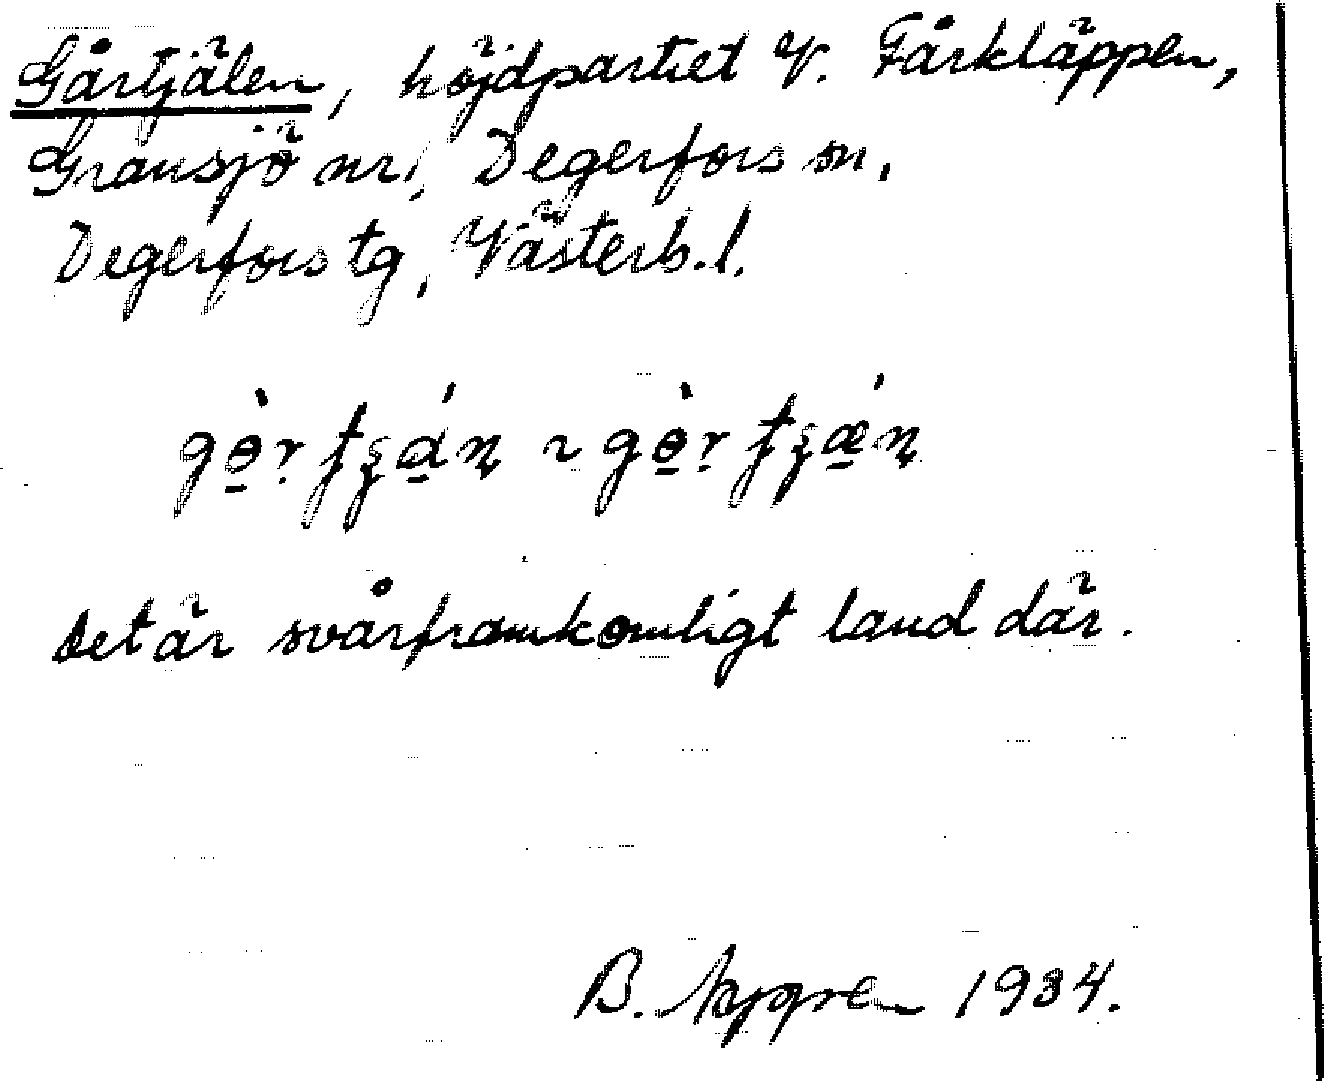 Gårtjälen, höjdpartiet V. Fårkläppen,
Gransjö nr 1, Degerfors sn,
Degerfors tg, Västerb. l.
Det är svårframkomligt land där.
B. 1934.